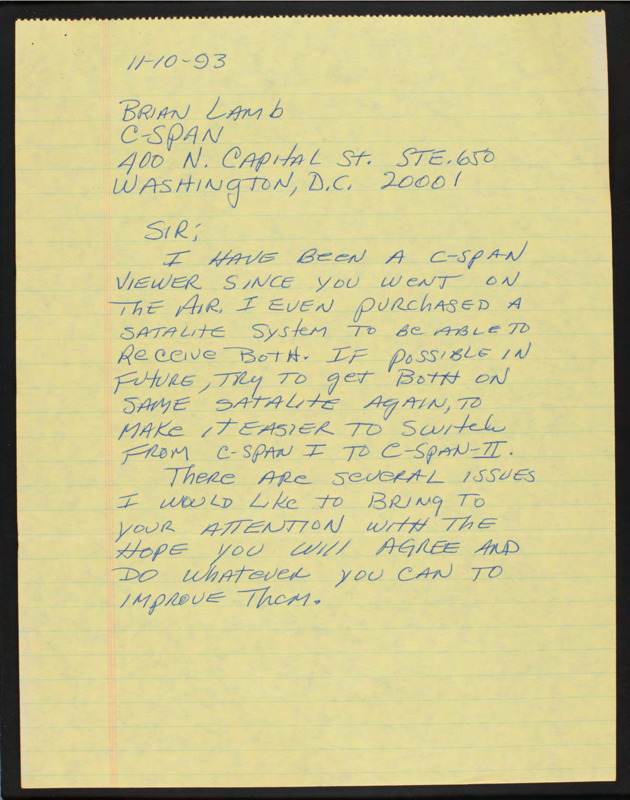 11-10-93
BRIAN LAMB
C-SPAN
400 N. CAPITAL St. STE. 650
WASHINGTON, D.C. 20001
SIR;
I HAVE BEEN A C-SPAN
VIEWER SINCE YOU WENT ON
THE AIR. I EVEN PURCHASED A
SATALITE SYSTEM TO BE ABLE TO
RECEIVE BOTH. IF POSSIBLE IN
FUTURE, TRY TO get BOTH ON
SAME SATALITE AGAIN, TO
MAKE it EASIER TO SWITCH
FROM C-SPAN I TO C-SPAN-II.
THERE ARE SEVERAL ISSUES
I WOULD LIKE to BRING TO
YOUR ATTENTION WITH THE
HOPE YOU WILL AGREE AND
DO WHATEVER YOU CAN TO
IMPROVE THEM.